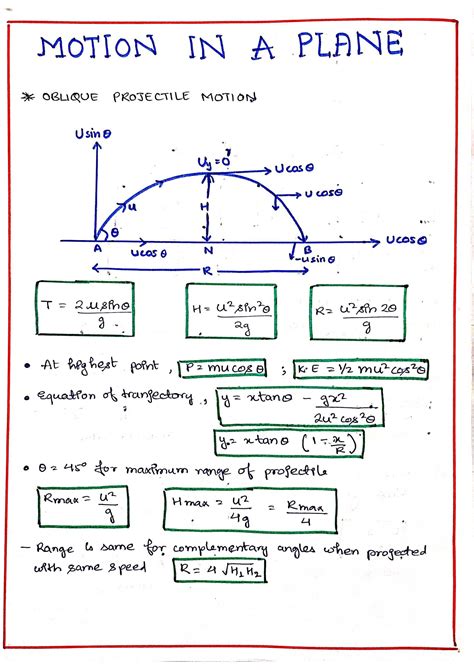 MOTION IN A PLANE
* OBLIQUE PROJECTILE MOTION
Usinθ
Uy=0
Ucosθ
Ucosθ
u
H
θ
A
Ucosθ
N
B
Ucosθ
-usinθ
R
T = 2usinθ/g
H = u²sin²θ/2g
R = u²sin2θ/g
• At highest point, P = mucosθ ; K.E = 1/2 mu²cos²θ
• equation of tranjectory, y = xtanθ - gx²/2u²cos²θ
y = xtanθ (1 - x/R)
• θ = 45° for maximum range of projectile
Rmax = u²/g
Hmax = u²/4g = Rmax/4
- Range is same for complementary angles when projected
with same speed R = 4√H₁H₂